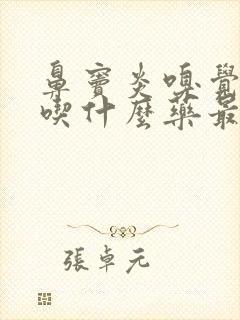 鼻竇炎嗅覺
喫什麼藥最
張卓元